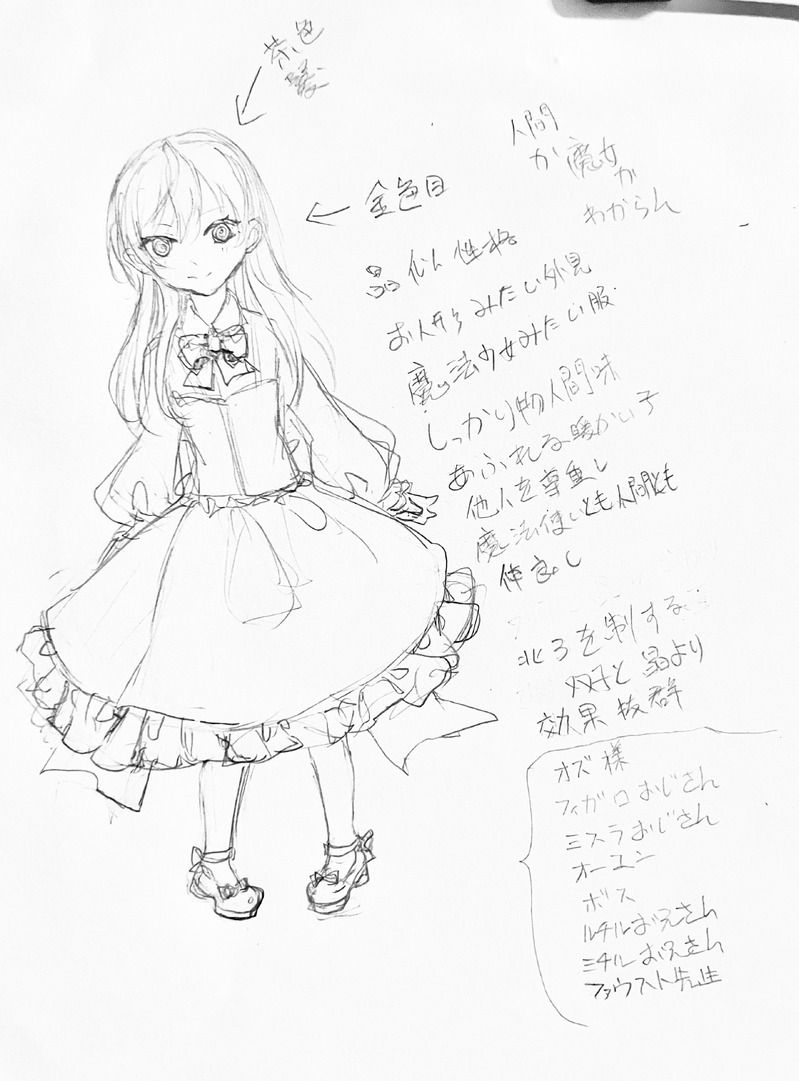 茶色
髪
金色目
人間
か魔女
か
わからん
晶似性格
お人形みたい外見
魔法少女みたい服
しっかり物人間味
あふれる暖かい子
他人を尊重し
魔法使いとも人間とも
仲良し
北3を制する
双子と晶より
効果抜群
オズ様
フィガロおじさん
ミスラおじさん
オーエン
ボス
ルチルお兄さん
ミチルお兄さん
ファウスト先生